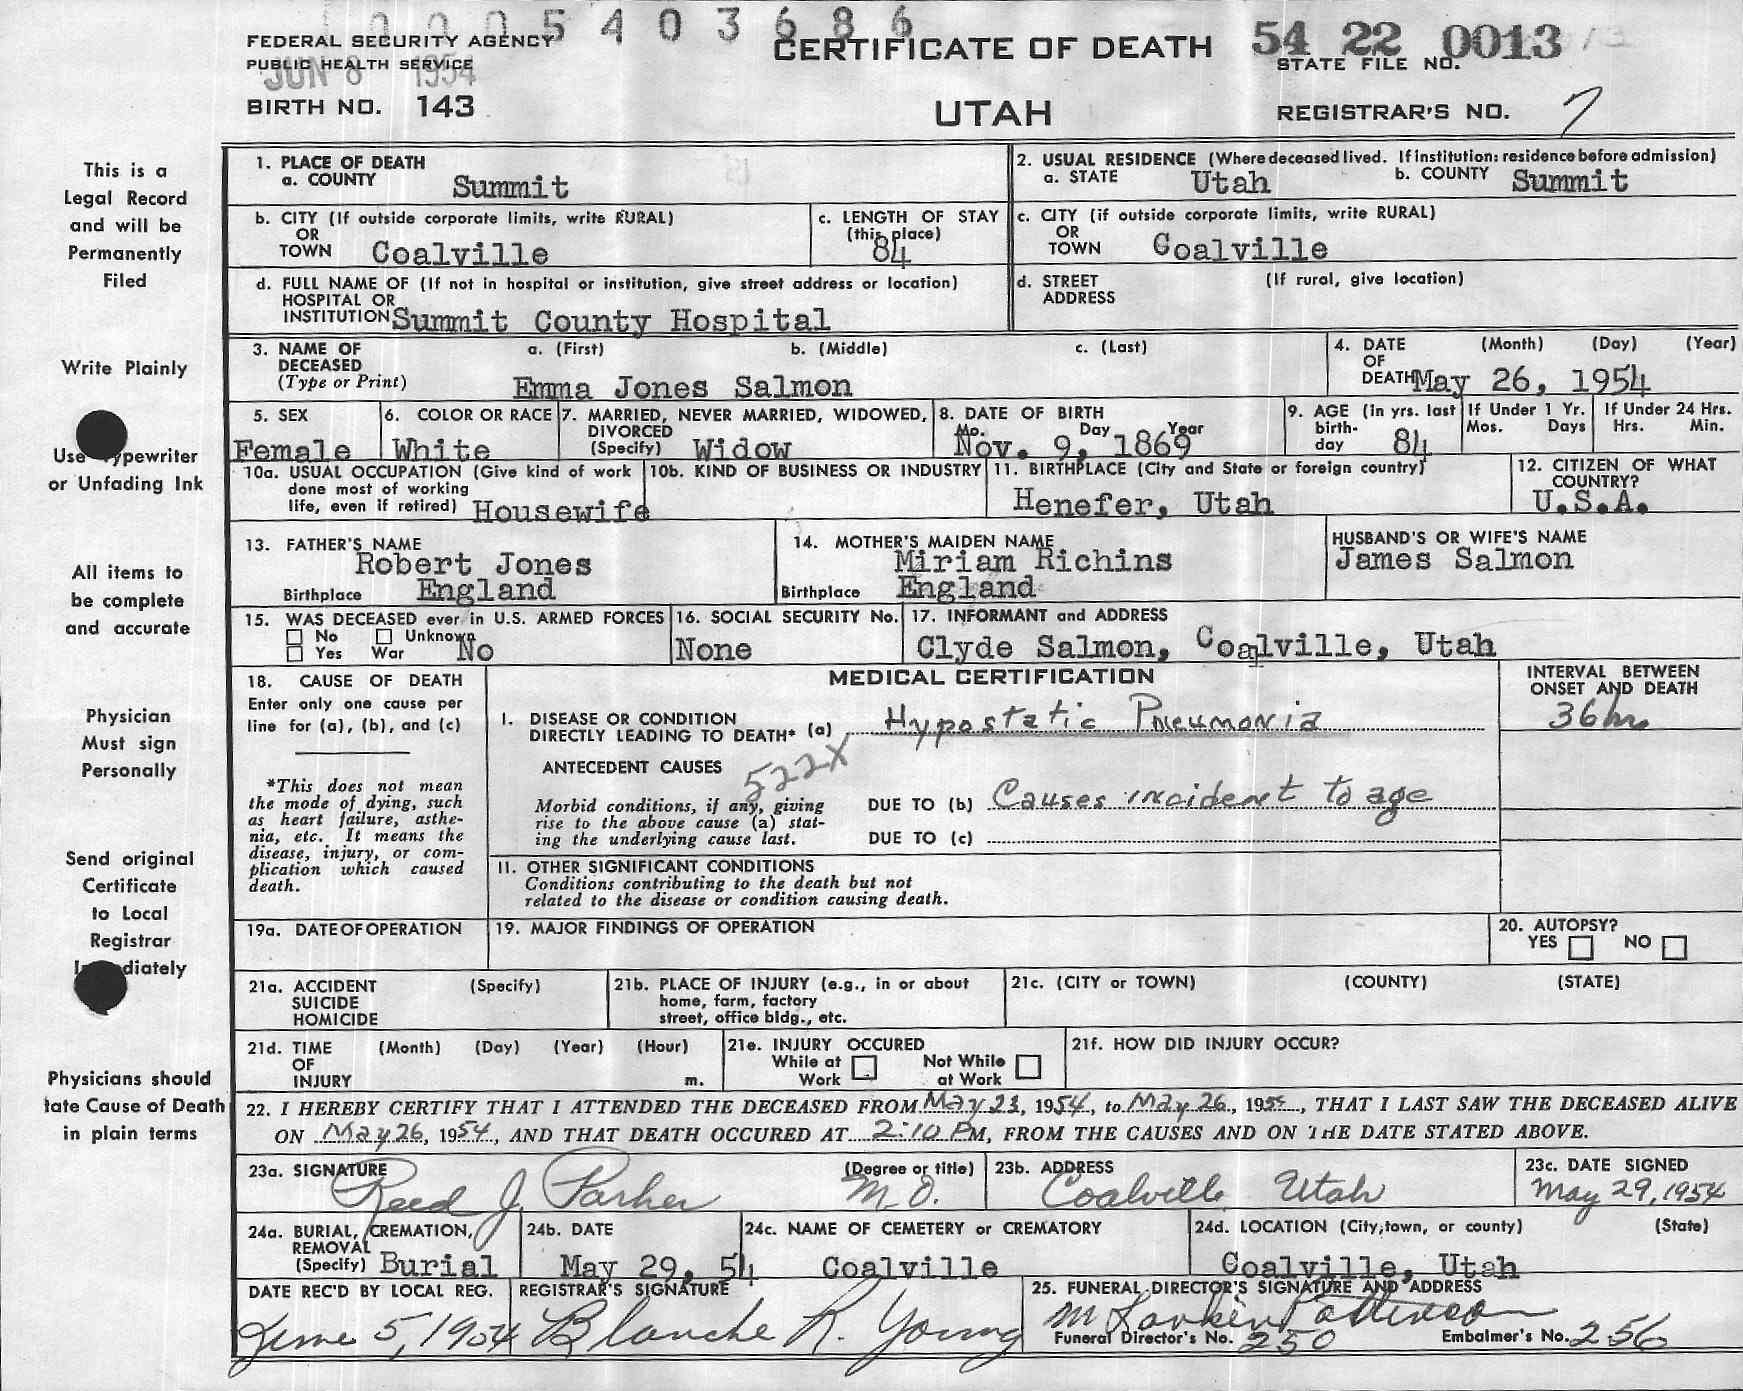 0005403686
FEDERAL SECURITY AGENCY
PUBLIC HEALTH SERVICE
JUN 8 1954
BIRTH NO. 143
CERTIFICATE OF DEATH
UTAH
54 22 0013
STATE FILE NO.
REGISTRAR'S NO. 7
This is a
Legal Record
and will be
Permanently
Filed
Write Plainly
Use Typewriter
or Unfading Ink
All items to
be complete
and accurate
Physician
Must sign
Personally
Send original
Certificate
to Local
Registrar
Immediately
Physicians should
tate Cause of Death
in plain terms
1. PLACE OF DEATH
a. COUNTY Summit
2. USUAL RESIDENCE (Where deceased lived. If institution: residence before admission)
a. STATE Utah b. COUNTY Summit
b. CITY (If outside corporate limits, write RURAL)
OR
TOWN Coalville
c. LENGTH OF STAY
(this place)
84
c. CITY (if outside corporate limits, write RURAL)
OR
TOWN Coalville
d. FULL NAME OF (If not in hospital or institution, give street address or location)
HOSPITAL OR
INSTITUTION Summit County Hospital
d. STREET (If rural, give location)
ADDRESS
3. NAME OF a. (First) b. (Middle) c. (Last)
DECEASED
(Type or Print) Emma Jones Salmon
4. DATE (Month) (Day) (Year)
OF
DEATH May 26, 1954
5. SEX
Female
6. COLOR OR RACE
White
7. MARRIED, NEVER MARRIED, WIDOWED,
DIVORCED
(Specify) Widow
8. DATE OF BIRTH
Mo. Day Year
Nov. 9, 1869
9. AGE (in yrs. last
birth-
day 84
If Under 1 Yr.
Mos. Days
If Under 24 Hrs.
Hrs. Min.
10a. USUAL OCCUPATION (Give kind of work
done most of working
life, even if retired) Housewife
10b. KIND OF BUSINESS OR INDUSTRY
11. BIRTHPLACE (City and State or foreign country)
Henefer, Utah
12. CITIZEN OF WHAT
COUNTRY?
U.S.A.
13. FATHER'S NAME
Robert Jones
Birthplace England
14. MOTHER'S MAIDEN NAME
Miriam Richins
Birthplace England
HUSBAND'S OR WIFE'S NAME
James Salmon
15. WAS DECEASED ever in U.S. ARMED FORCES
No Unknown
Yes War No
16. SOCIAL SECURITY No.
None
17. INFORMANT and ADDRESS
Clyde Salmon, Coalville, Utah
18. CAUSE OF DEATH
Enter only one cause per
line for (a), (b), and (c)
*This does not mean
the mode of dying, such
as heart failure, asthe-
nia, etc. It means the
disease, injury, or com-
plication which caused
death.
MEDICAL CERTIFICATION
INTERVAL BETWEEN
ONSET AND DEATH
I. DISEASE OR CONDITION
DIRECTLY LEADING TO DEATH* (a) Hypostatic Pneumonia 36 hrs
ANTECEDENT CAUSES
522X
Morbid conditions, if any, giving
rise to the above cause (a) stat-
ing the underlying cause last.
DUE TO (b) Causes incident to age
DUE TO (c)
II. OTHER SIGNIFICANT CONDITIONS
Conditions contributing to the death but not
related to the disease or condition causing death.
19a. DATE OF OPERATION
19. MAJOR FINDINGS OF OPERATION
20. AUTOPSY?
YES NO
21a. ACCIDENT (Specify)
SUICIDE
HOMICIDE
21b. PLACE OF INJURY (e.g., in or about
home, farm, factory
street, office bldg., etc.
21c. (CITY or TOWN) (COUNTY) (STATE)
21d. TIME (Month) (Day) (Year) (Hour)
OF
INJURY m.
21e. INJURY OCCURED
While at Not While
Work at Work
21f. HOW DID INJURY OCCUR?
22. I HEREBY CERTIFY THAT I ATTENDED THE DECEASED FROM May 23, 1954, to May 26, 1954, THAT I LAST SAW THE DECEASED ALIVE
ON May 26, 1954, AND THAT DEATH OCCURED AT 2:10 PM, FROM THE CAUSES AND ON THE DATE STATED ABOVE.
23a. SIGNATURE (Degree or title)
Reed J. Parker M.D.
23b. ADDRESS
Coalville Utah
23c. DATE SIGNED
May 29, 1954
24a. BURIAL, CREMATION,
REMOVAL
(Specify) Burial
24b. DATE
May 29, 54
24c. NAME OF CEMETERY or CREMATORY
Coalville
24d. LOCATION (City, town, or county) (State)
Coalville, Utah
DATE REC'D BY LOCAL REG.
June 5, 1954
REGISTRAR'S SIGNATURE
Blanche R. Young
25. FUNERAL DIRECTOR'S SIGNATURE AND ADDRESS
M Larkin Patterson
Funeral Director's No. 250 Embalmer's No. 256